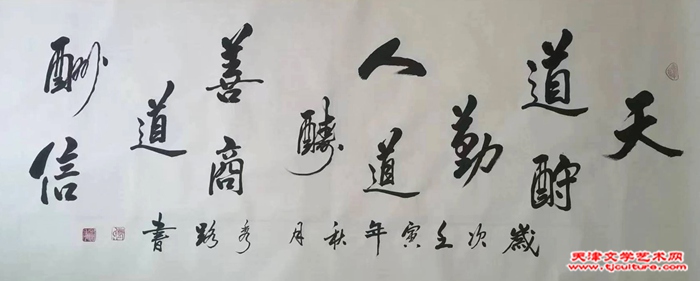 天
道酧
勤
人道
醻
善商
道
酬信
歲次壬寅年秋月秀路書
天津文学艺术网
www.tjculture.com